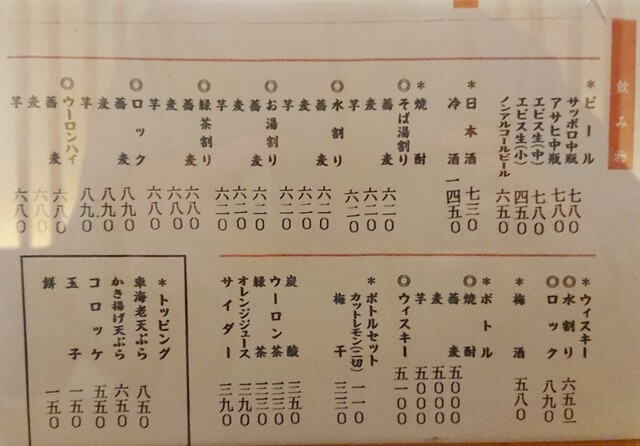 飲み物
*ビール
サッポロ中瓶 七八〇
アサヒ中瓶 七八〇
エビス生(中) 七八〇
エビス生(小) 四五〇
ノンアルコールビール 六五〇
*日本酒 七三〇
冷酒 一四五〇
*焼酎
◎そば湯割り
蕎麦 六二〇
麦
芋 六二〇
◎水割り
蕎麦 六二〇
麦 六二〇
芋 六二〇
◎お湯割り
蕎麦 六二〇
麦 六二〇
芋 六二〇
◎緑茶割り
蕎麦 六八〇
麦 六八〇
芋 六八〇
◎ロック
蕎麦 八九〇
麦 八九〇
芋 八九〇
◎ウーロンハイ
蕎麦 六八〇
麦 六八〇
芋 六八〇
*ウィスキー
◎水割り 六五〇
◎ロック 八九〇
*梅酒 五八〇
*ボトル
◎焼酎
蕎麦 五〇〇〇
麦 五〇〇〇
芋 五〇〇〇
◎ウィスキー 五一〇〇
*ボトルセット
カットレモン(二切) 一一〇
梅干 三三〇
炭酸 三五〇
ウーロン茶 三三〇
緑茶 三三〇
オレンジジュース 三九〇
サイダー 三九〇
*トッピング
車海老天ぷら 八五〇
かき揚げ天ぷら 六五〇
コロッケ 五五〇
玉子 一五〇
餅 一五〇